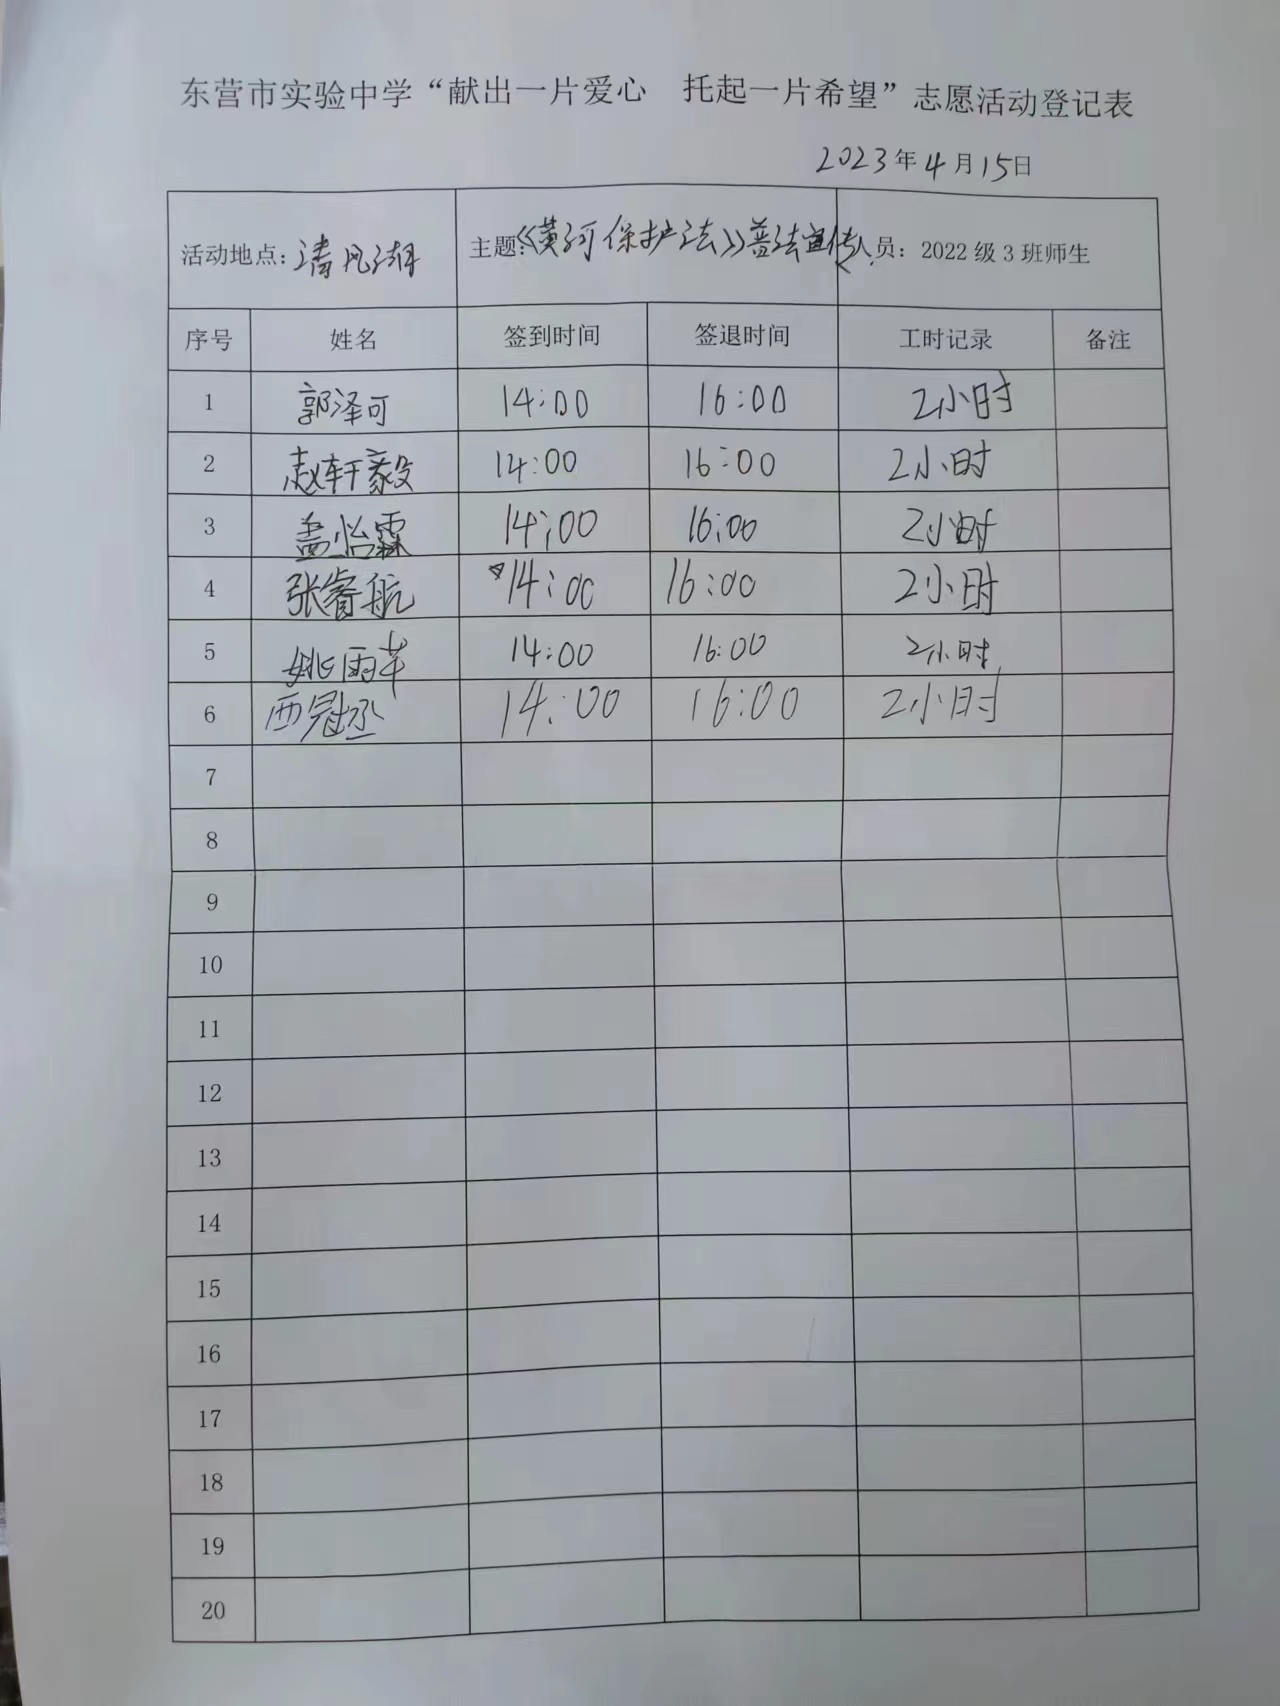 东营市实验中学“献出一片爱心 托起一片希望”志愿活动登记表
2023年4月15日
活动地点：清风湖 主题：《黄河保护法》普法宣传 人员：2022级3班师生
序号 姓名 签到时间 签退时间 工时记录 备注
1 郭泽可 14:00 16:00 2小时
2 赵轩毅 14:00 16:00 2小时
3 孟怡霖 14:00 16:00 2小时
4 张睿航 14:00 16:00 2小时
5 姚雨芊 14:00 16:00 2小时
6 西冠丞 14:00 16:00 2小时
7
8
9
10
11
12
13
14
15
16
17
18
19
20